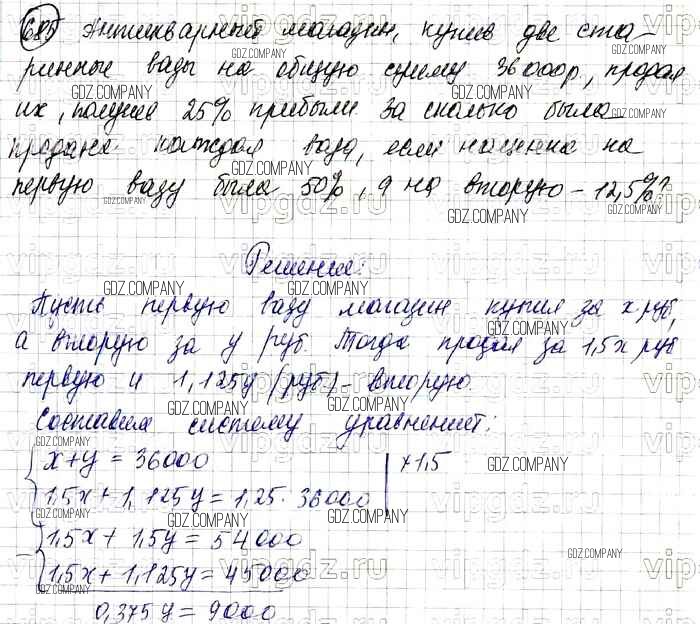 685 Антикварный магазин, купив две ста-
ринные вазы на общую сумму 36000р, продал
их, получив 25% прибыли за сколько была
продана каждая ваза, если наценка на
первую вазу была 50%, а на вторую – 12,5%?
Решение:
Пусть первую вазу магазин купил за x руб,
а вторую за y руб. Тогда продал за 1,5x руб
первую и 1,125y (руб.) – вторую.
Составим систему уравнений:
x + y = 36000 | × 1,5
1,5x + 1,125y = 1,25 · 36000
1,5x + 1,5y = 54000
1,5x + 1,125y = 45000
0,375y = 9000
vipgdz.ru
GDZ.COMPANY